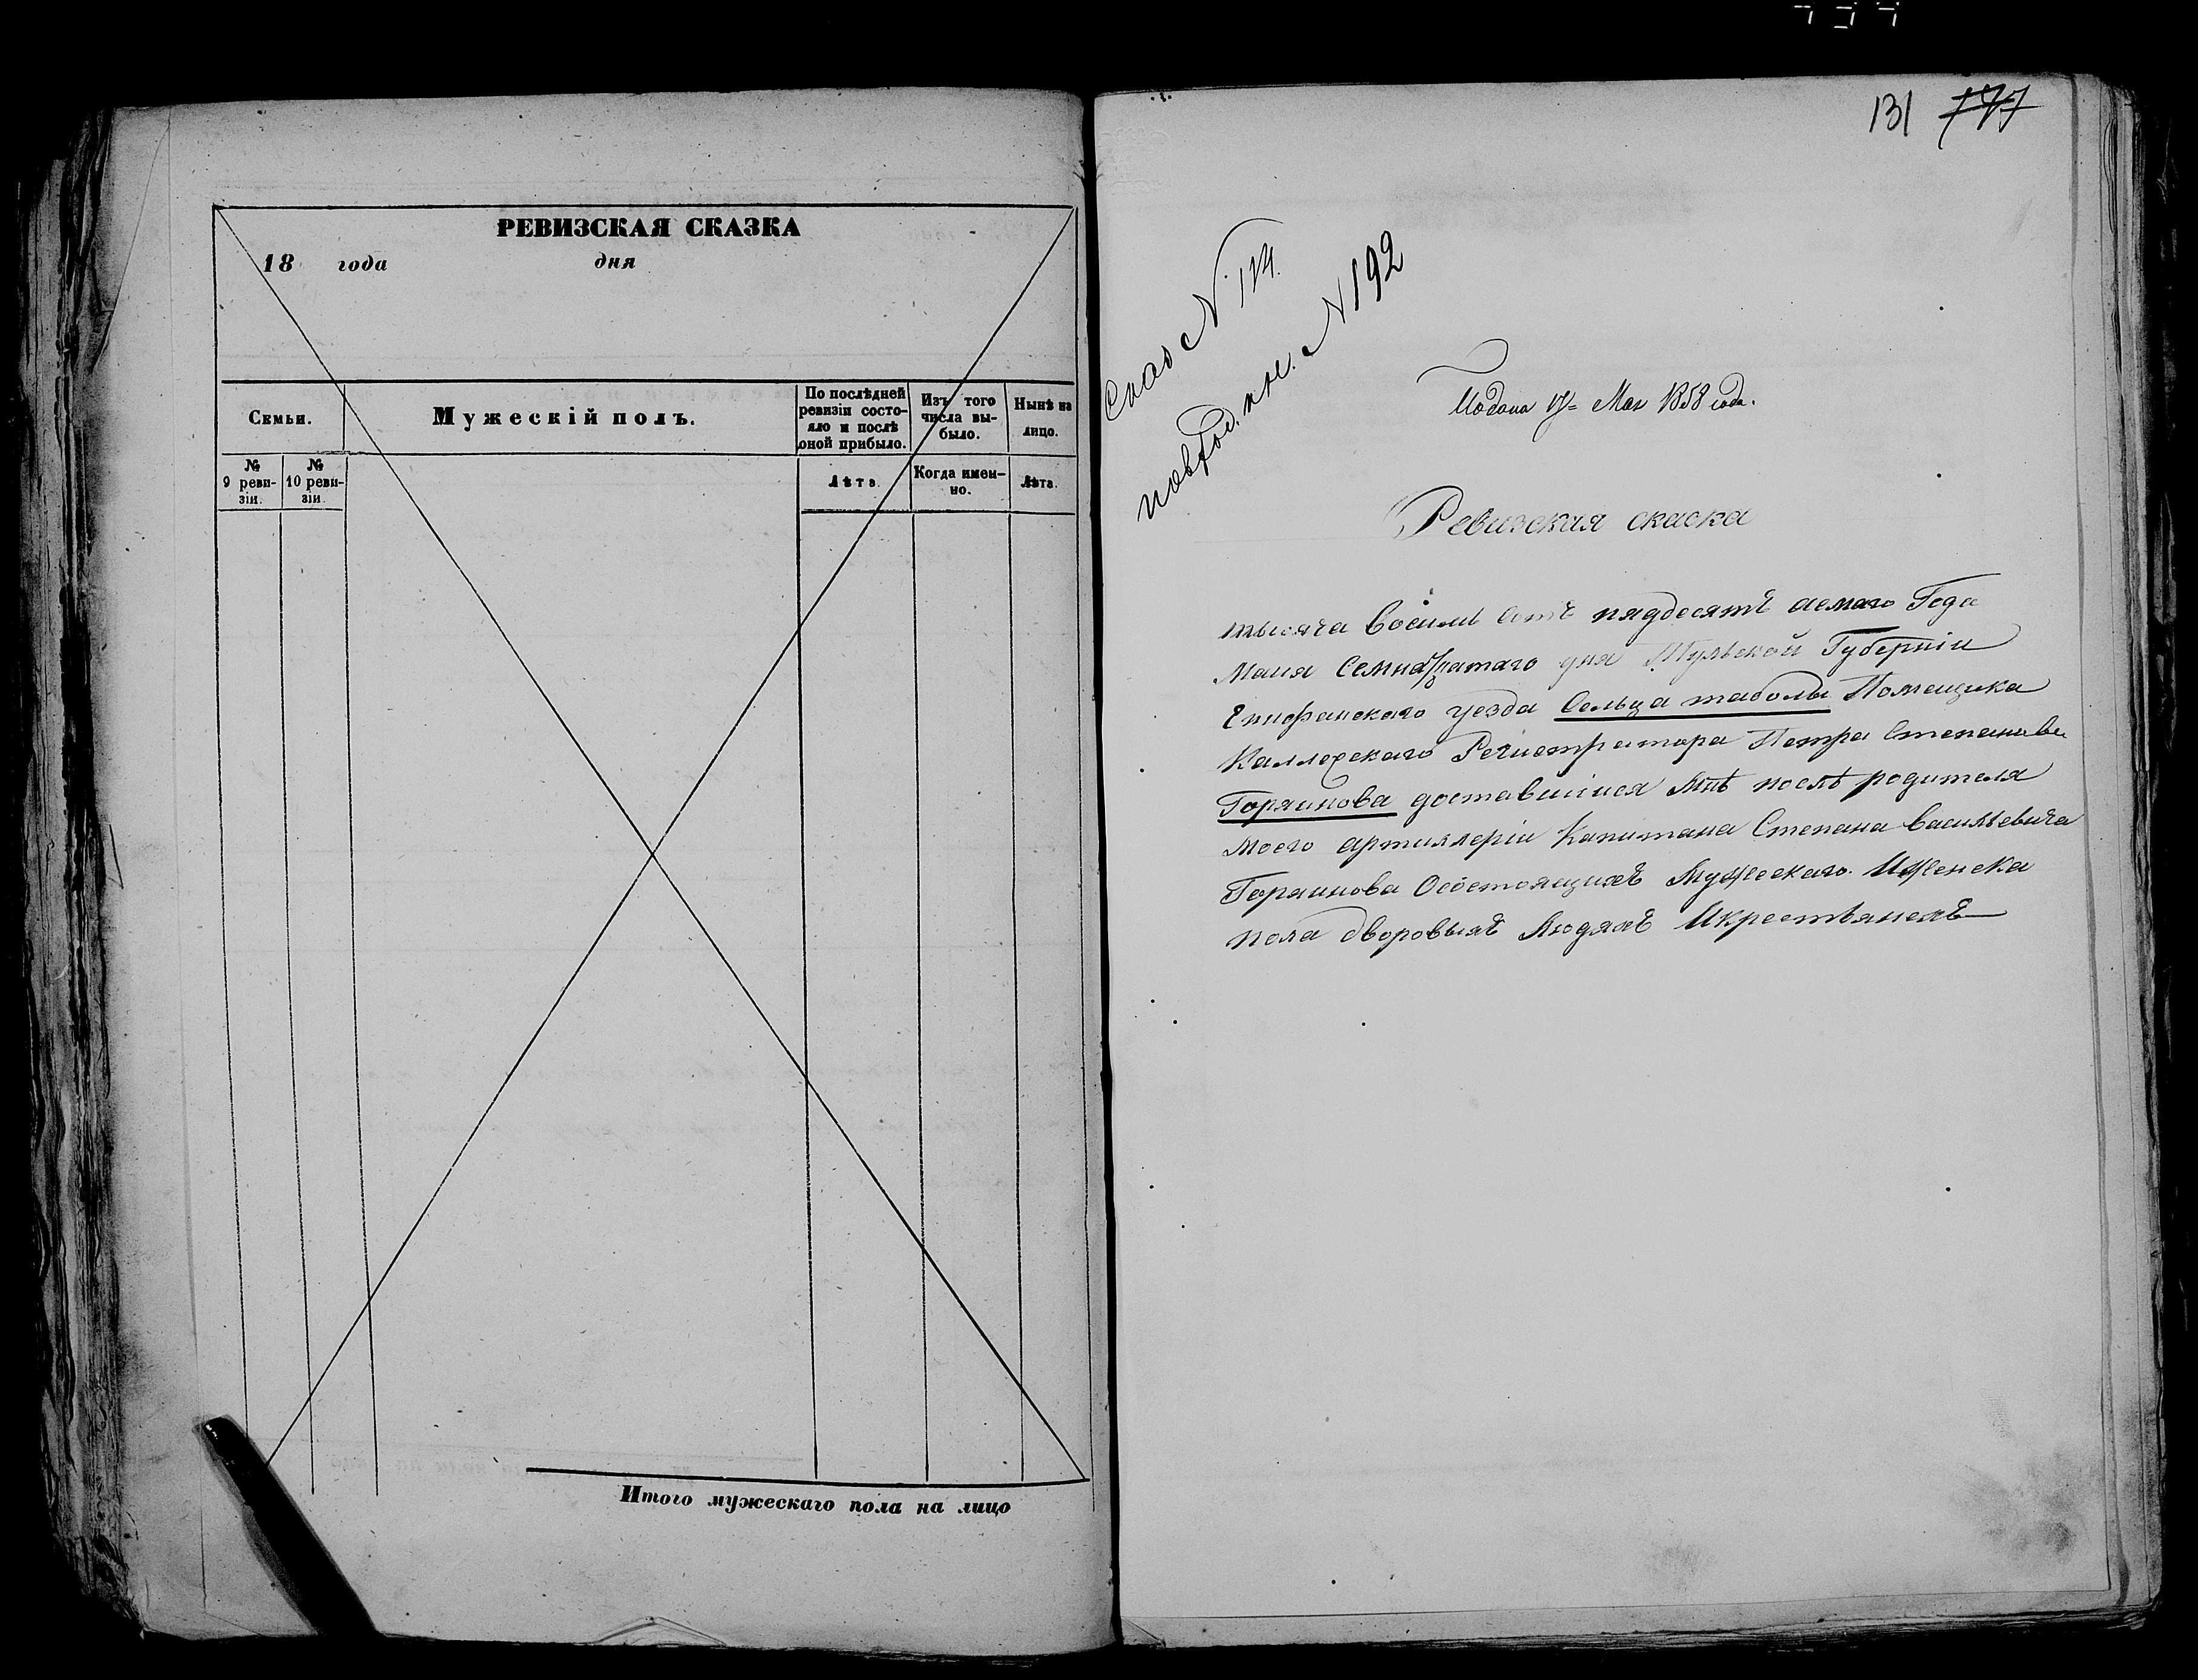 РЕВИЗСКАЯ СКАЗКА
18 года дня
Семьи.
Мужескій полъ.
По послѣдней ревизіи состояло и послѣ оной прибыло.
Изъ того числа выбыло.
Нынѣ на лицо.
№ 9 ревизіи.
№ 10 ревизіи
Лѣта.
Когда именно.
Лѣта.
Итого мужескаго пола на лицо
131
N 114.
N 192
Подана 17 = Мая 1858 года.
Ревизская скаска
тысяча Восимь Сотъ пяддесятъ асмаго Года
Маия Семнадцатаго дня Тульской Губерніи
Епифанскаго уезда Сельца таболы Помещика
Каллежскаго Регистратора Петра Степанова
Горяинова доставшиися Мнѣ послѣ родителя
моего артиллеріи Капитана Степана Васильевича
Горяинова Осостоящихъ Мужескаго Иженска
пола дворовыхъ Людяхъ Икрестьянехъ